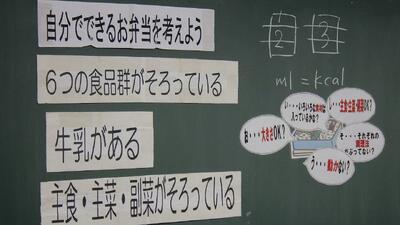 自分でできるお弁当を考えよう
6つの食品群がそろっている
牛乳がある
主食・主菜・副菜がそろっている
1
2
2
3
ml = kcal
い・・・いろいろな食材は入っているかな?
い・・・主食:主菜・副菜OK?
お・・・大きさOK?
そ・・・それぞれの調理法かぶってない?
う・・・動かない?